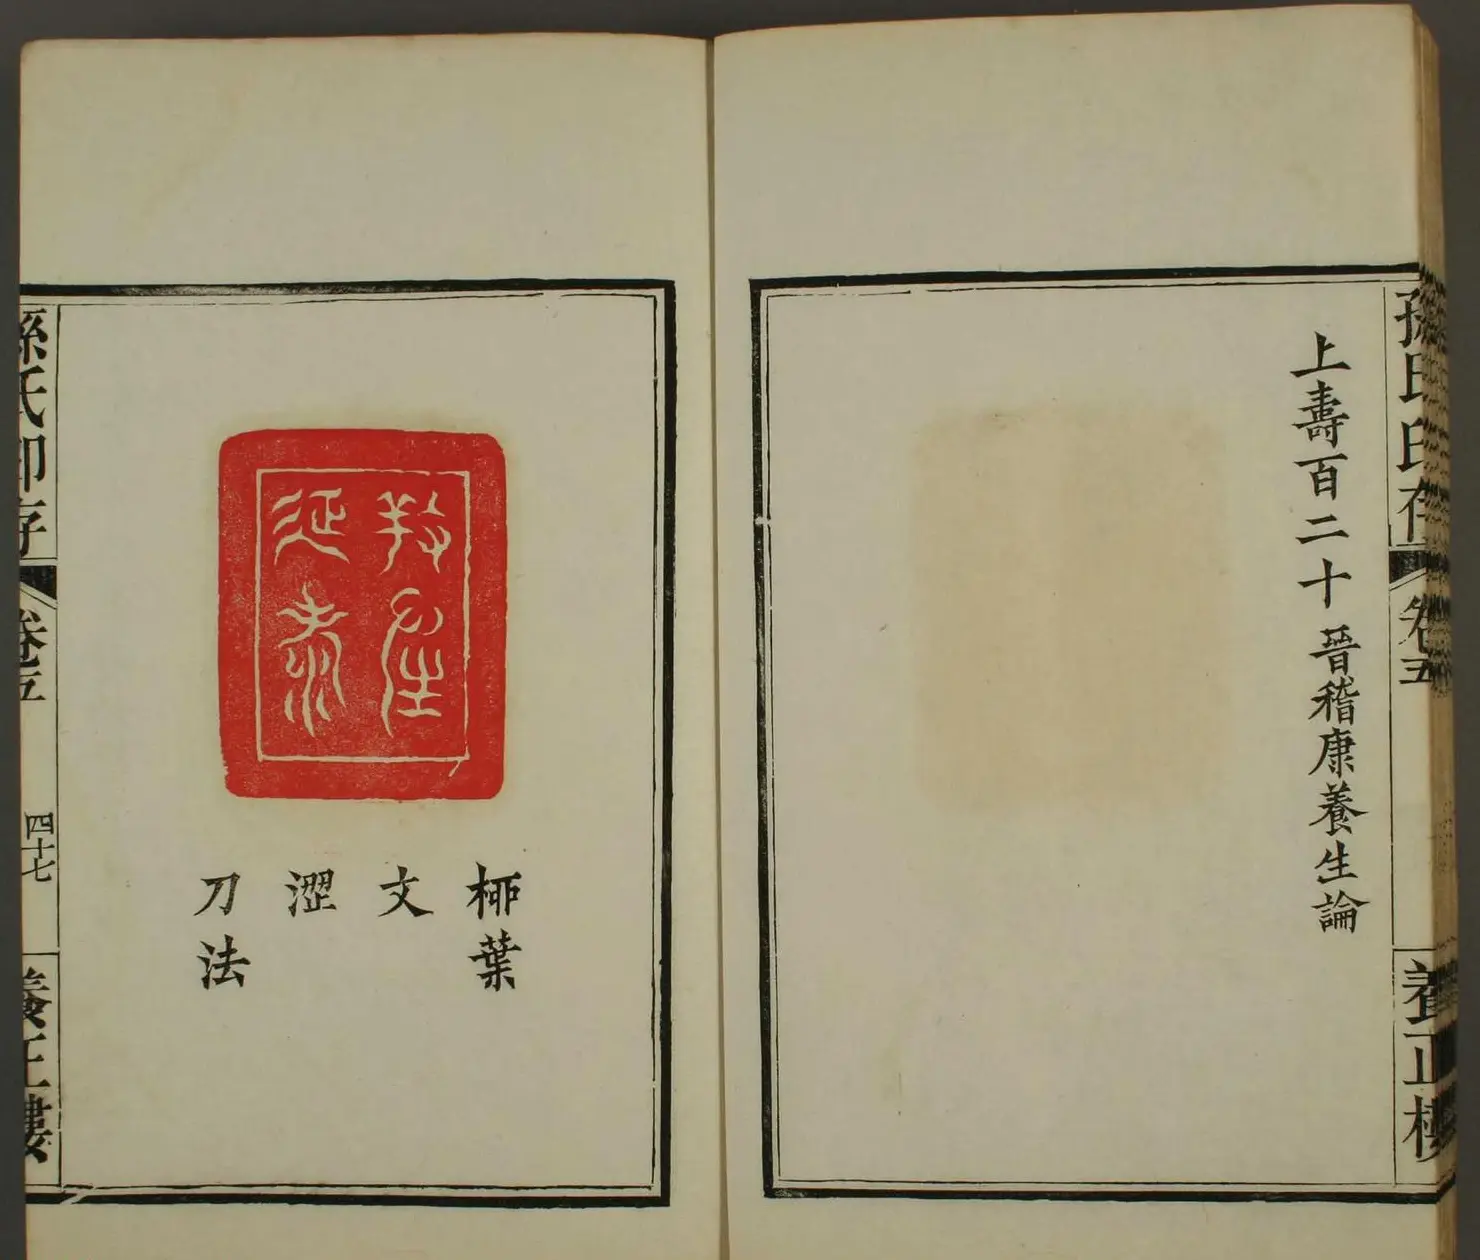 孫氏印存
卷五
養正樓
上壽百二十 晉稽康養生論
養性
延
柳葉
文
澀
刀法
孫氏印存
卷五
四十七
養正樓